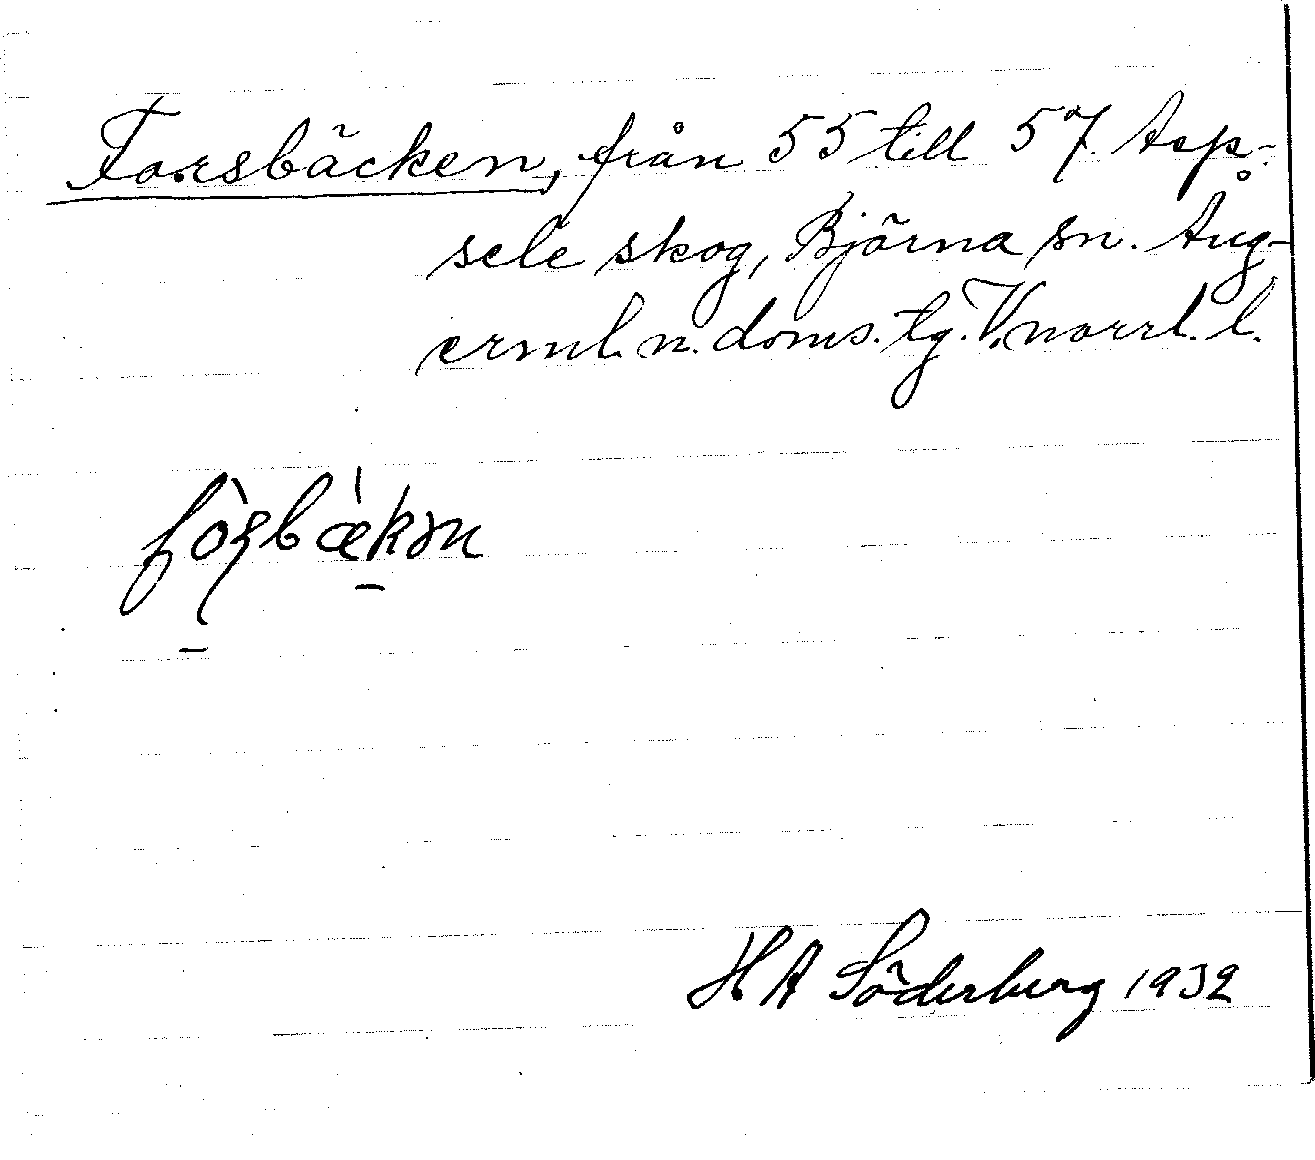 Forsbäcken, från 55 till 57 Asp-
sele skog, Björna sn. Ång-
erml. n. doms. tg. V.norrl. l.
H A Söderberg 1932